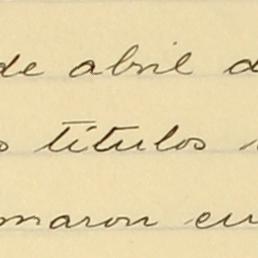 de abril d
s títulos
maron en